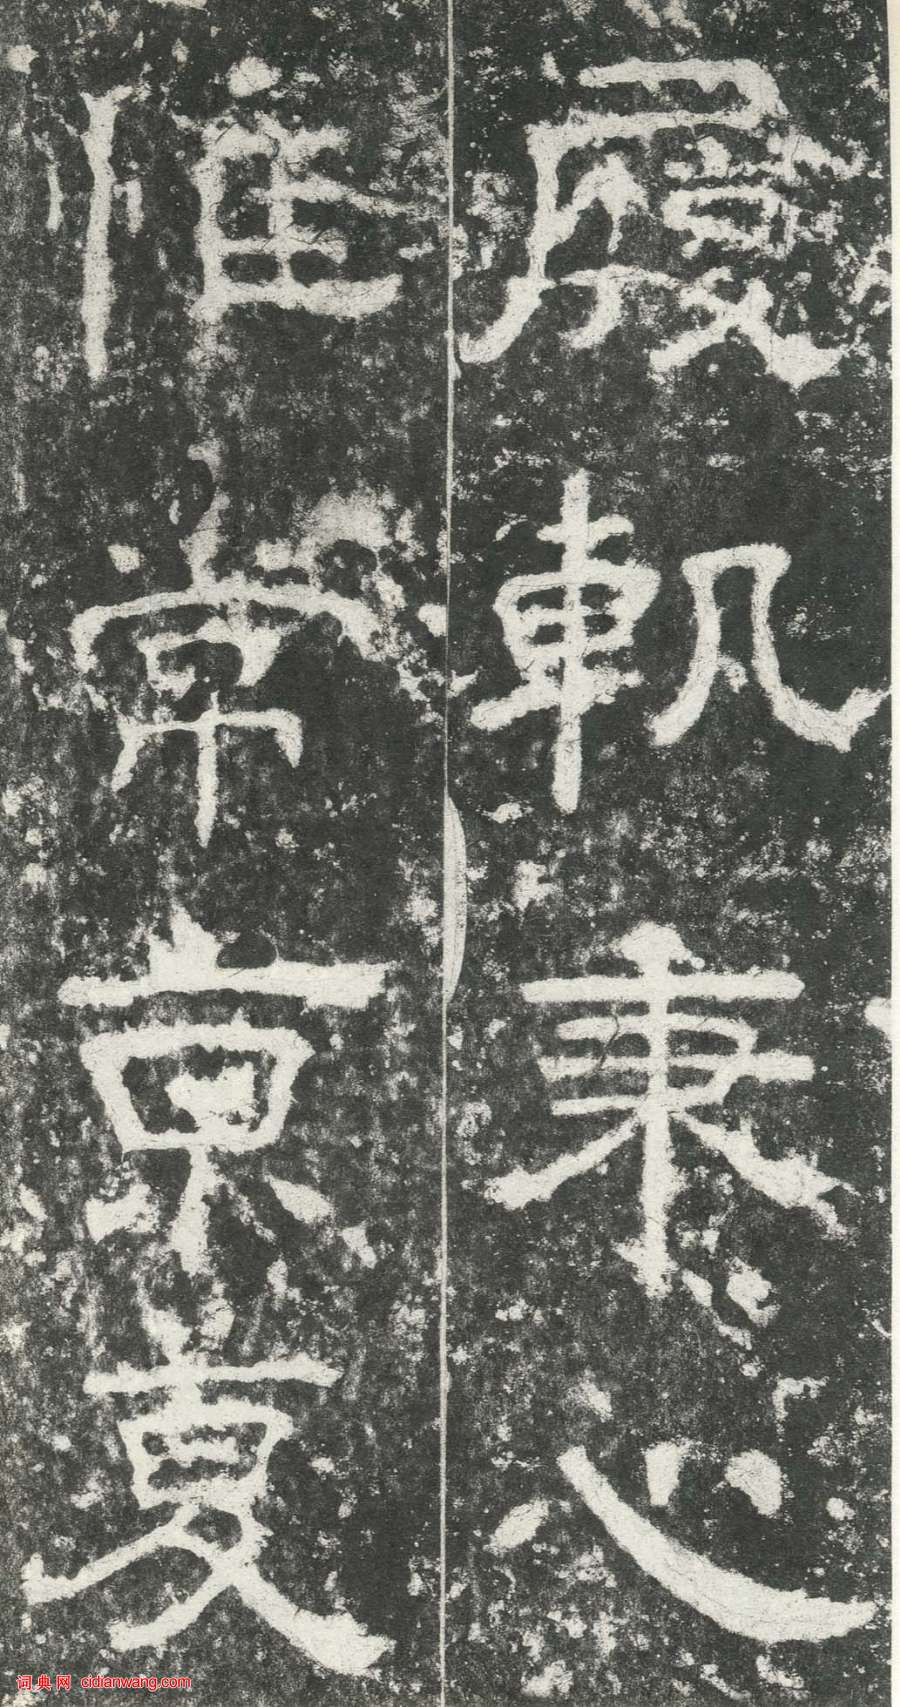 履軌秉心
惟常京夏
词典网 cidianwang.com